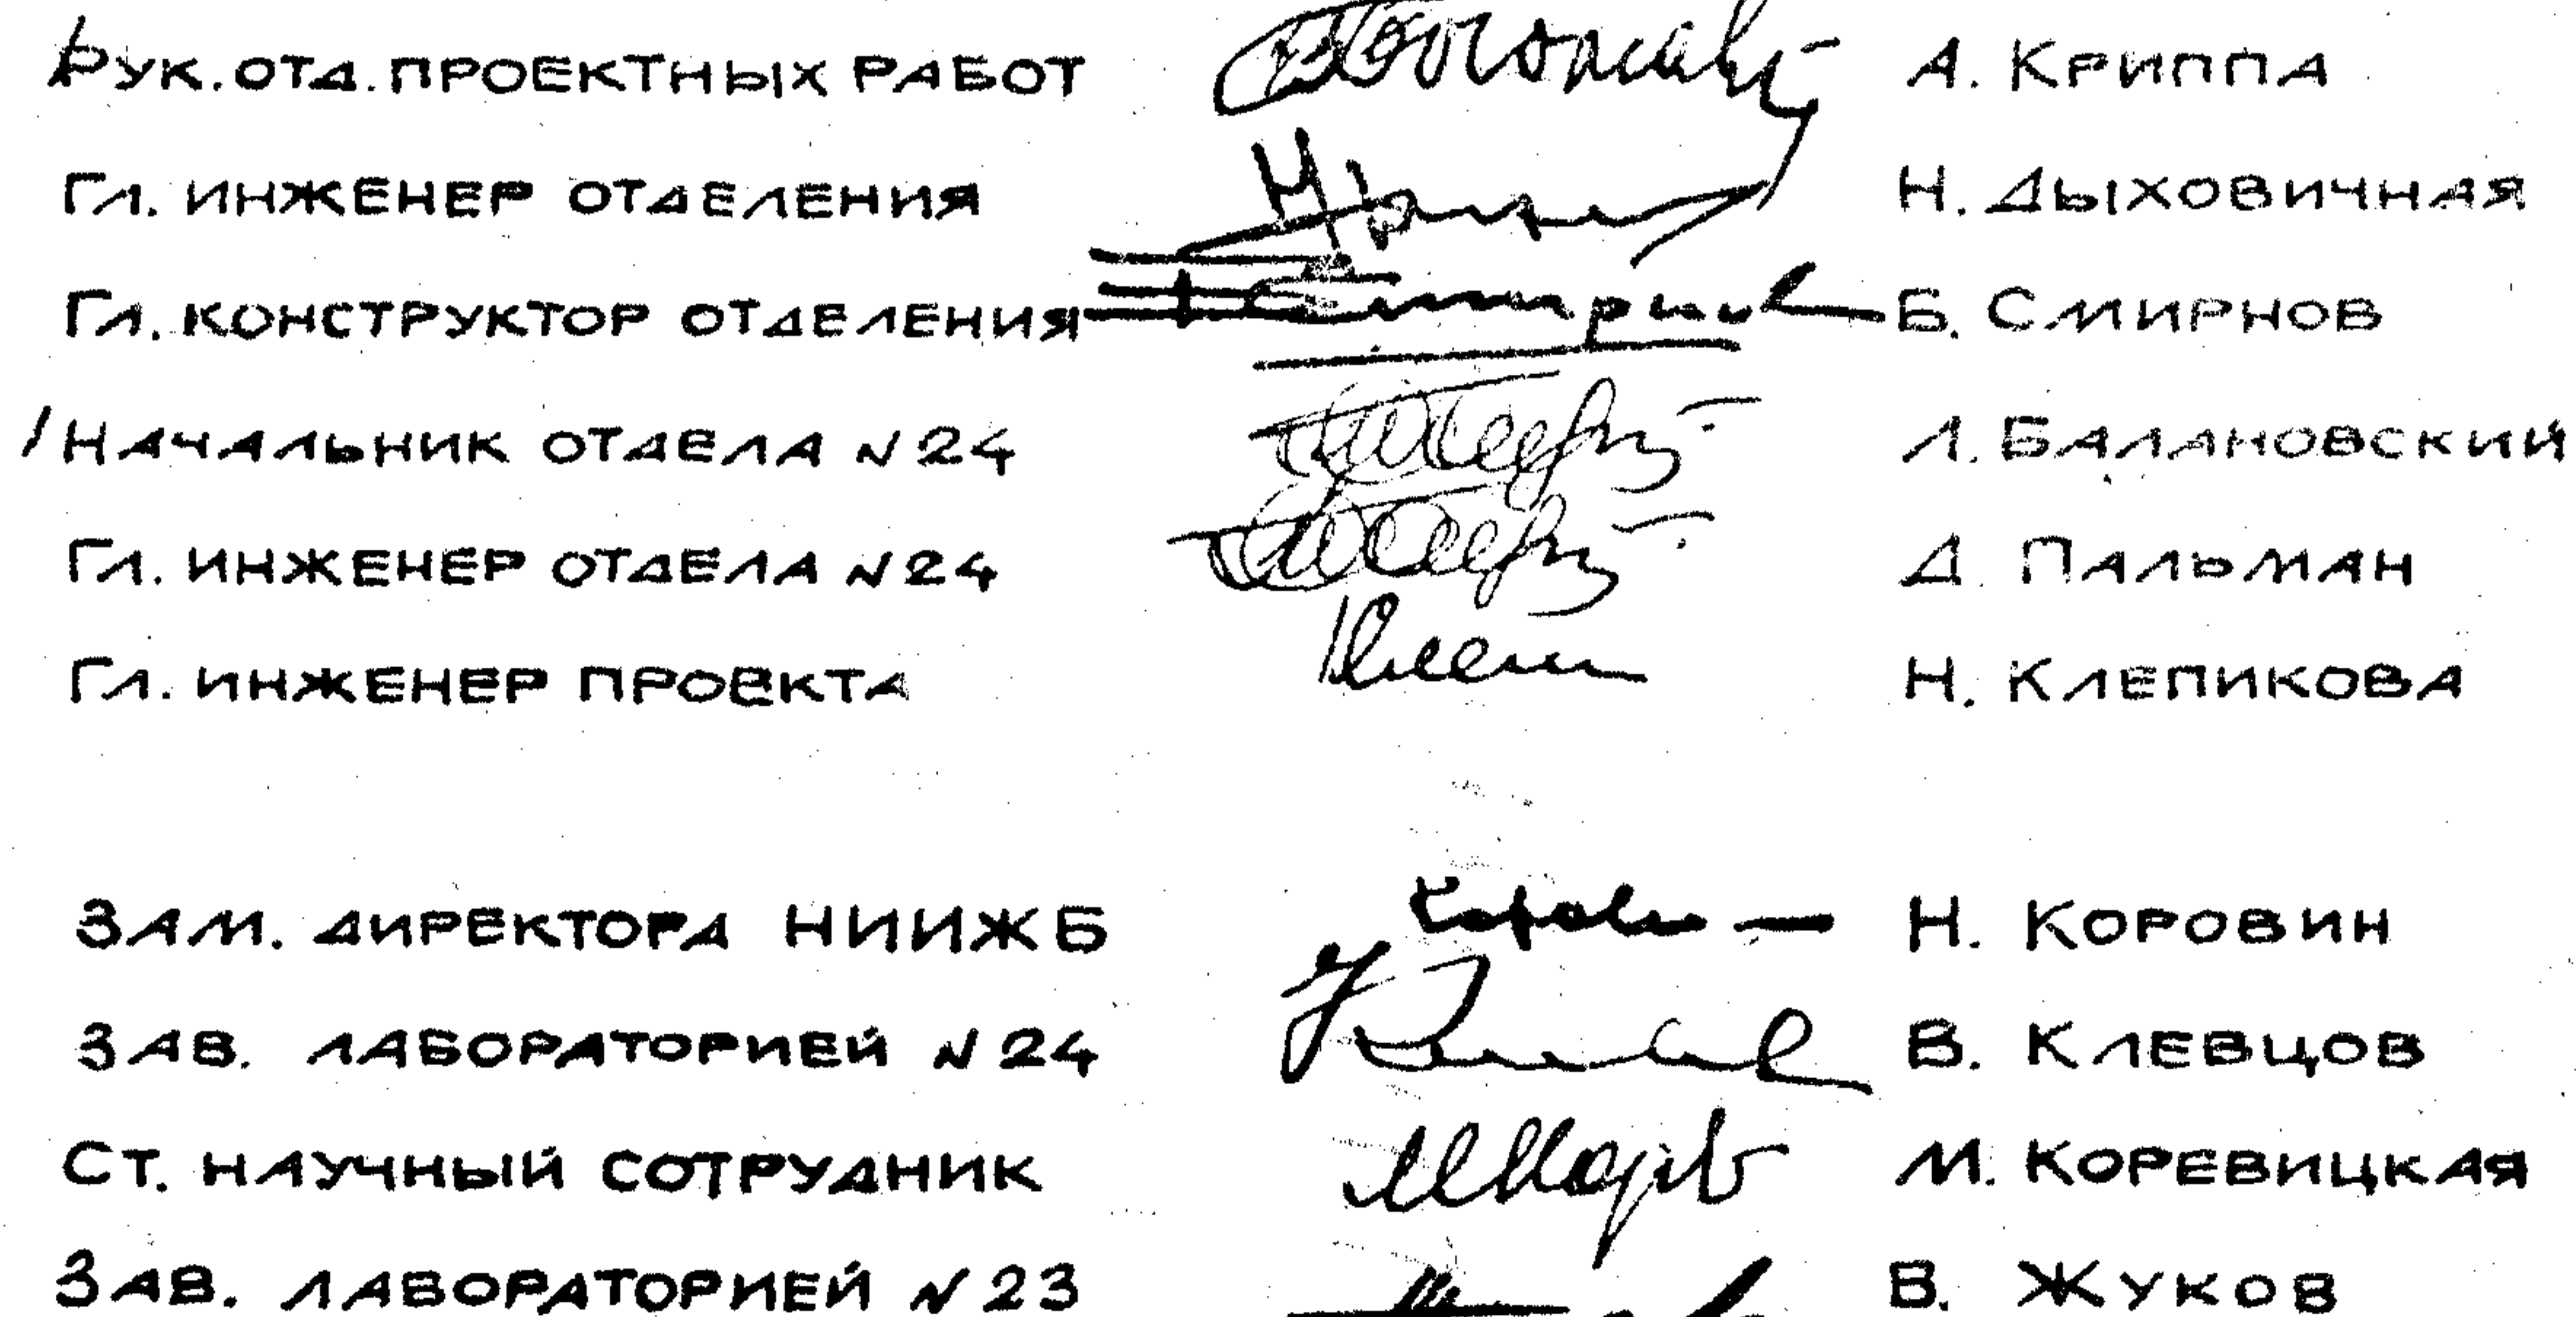 Рук. отд. проектных работ А. Криппа
Гл. инженер отделения Н. Дыховичная
Гл. конструктор отделения Б. Смирнов
Начальник отдела N 24 Л. Балановский
Гл. инженер отдела N 24 Д. Пальман
Гл. инженер проекта Н. Клепикова
Зам. директора НИИЖБ Н. Коровин
Зав. лабораторией N 24 В. Клевцов
Ст. научный сотрудник М. Коревицкая
Зав. лабораторией N 23 В. Жуков